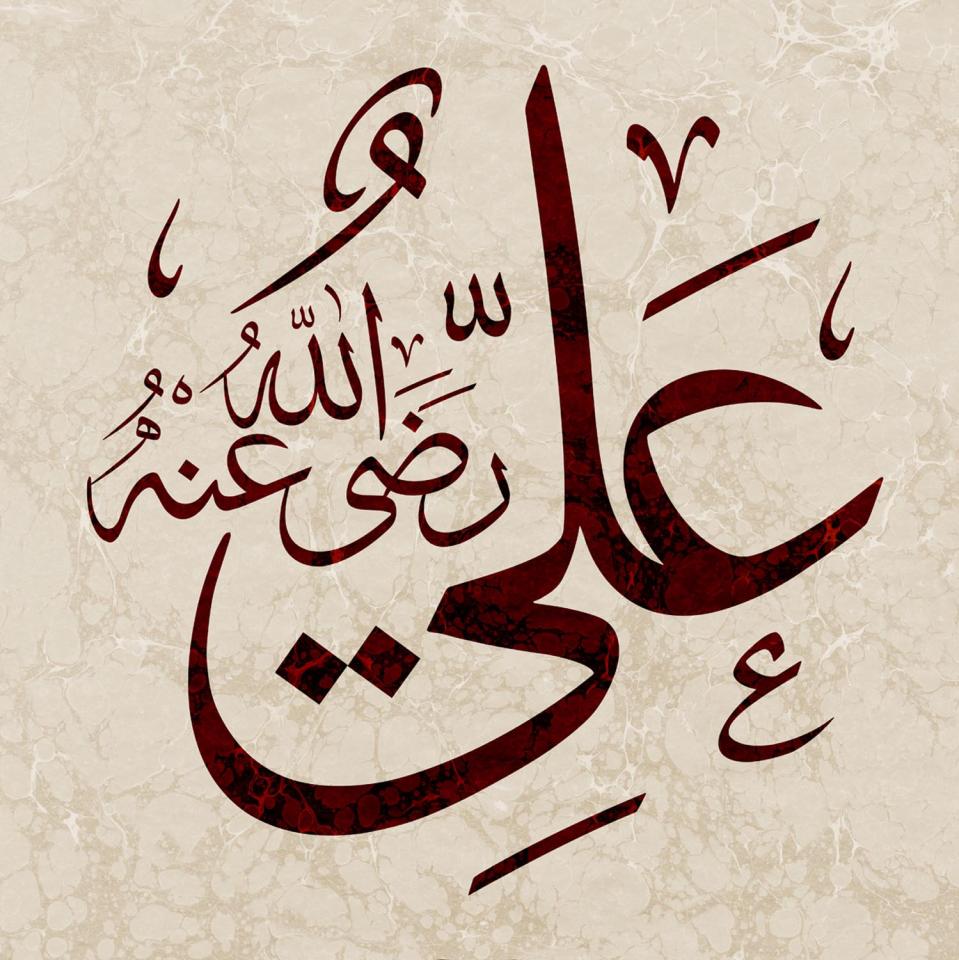 عَلِيٌّ
رَضِىَ اللّٰهُ عَنْهُ